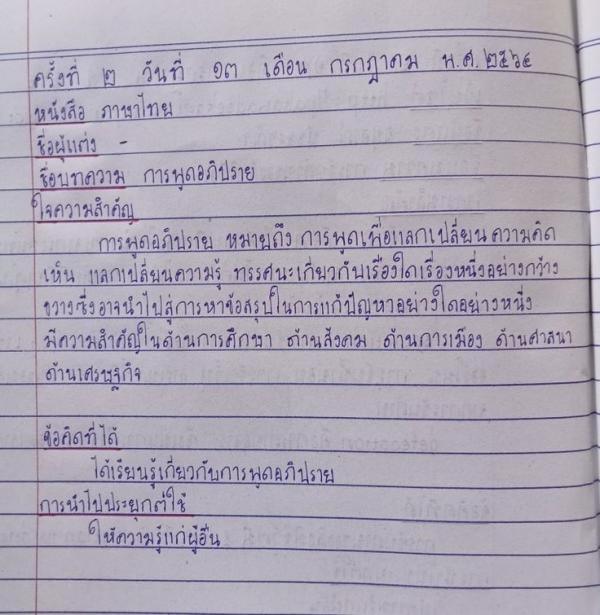 ครั้งที่ ๒ วันที่ ๑๓ เดือน กรกฎาคม พ.ศ. ๒๕๖๔
หนังสือ ภาษาไทย
ชื่อผู้แต่ง -
ชื่อบทความ การพูดอภิปราย
ใจความสำคัญ
การพูดอภิปราย หมายถึง การพูดเพื่อแลกเปลี่ยนความคิด
เห็น แลกเปลี่ยนความรู้ ทรรศนะเกี่ยวกับเรื่องใดเรื่องหนึ่งอย่างกว้าง
ขวางซึ่งอาจนำไปสู่การหาข้อสรุปในการแก้ปัญหาอย่างใดอย่างหนึ่ง
มีความสำคัญในด้านการศึกษา ด้านสังคม ด้านการเมือง ด้านศาสนา
ด้านเศรษฐกิจ
ข้อคิดที่ได้
ได้เรียนรู้เกี่ยวกับการพูดอภิปราย
การนำไปประยุกต์ใช้
ให้ความรู้แก่ผู้อื่น